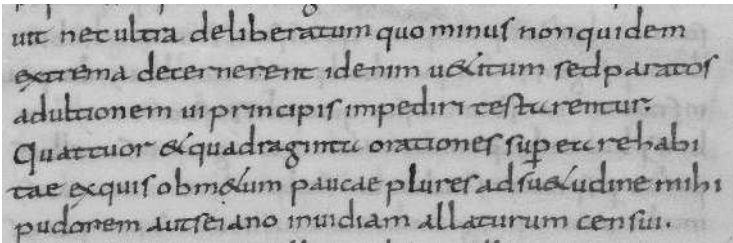 uit nec ultra deliberatum quo minus nonquidem
extrema decernerent idenim u&itum sedparatos
adultionem uiprincipis impediri testarentur.
Quattuor &quadraginta orationes sup̲ ea rehabi
tae exquis obm&um paucae plures adsu&udine mihi
pudorem autseiano inuidiam allaturum censui.